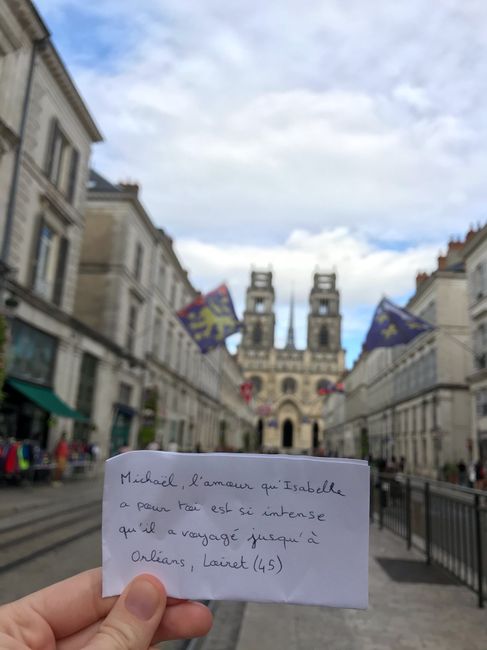 Michaël, l'amour qu'Isabelle
a pour toi est si intense
qu'il a voyagé jusqu'à
Orléans, Loiret (45)